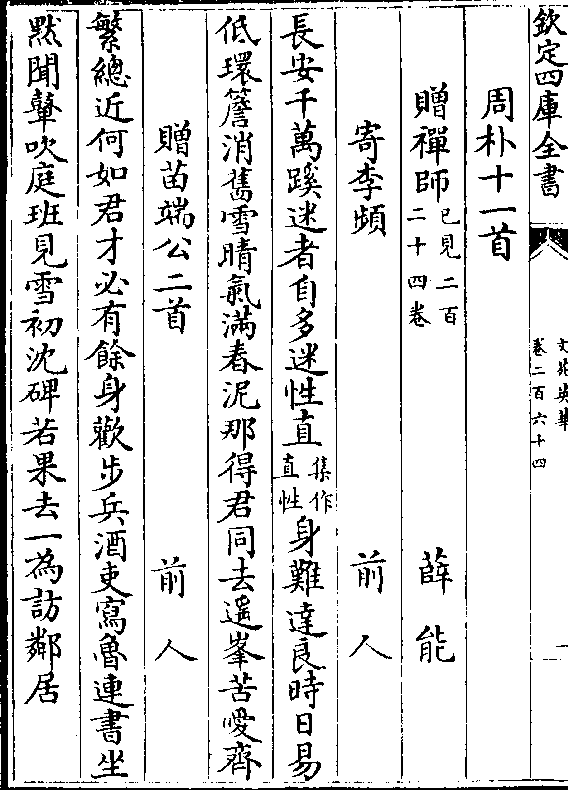 欽定四庫全書
文苑英華
卷二百六十四
一
周朴十一首
贈禪師已見二百二十四卷 薛能
寄李頻 前人
長安千萬蹊迷者自多迷性直集作直性身難達良時日易
低環簷消舊雪晴氣滿春泥那得君同去遥峯苦愛齊
贈苗端公二首 前人
繁總近何如君才必有餘身歡步兵酒吏寫魯連書坐
默聞鼙吹庭班見雪初沈碑若果去一為訪鄰居